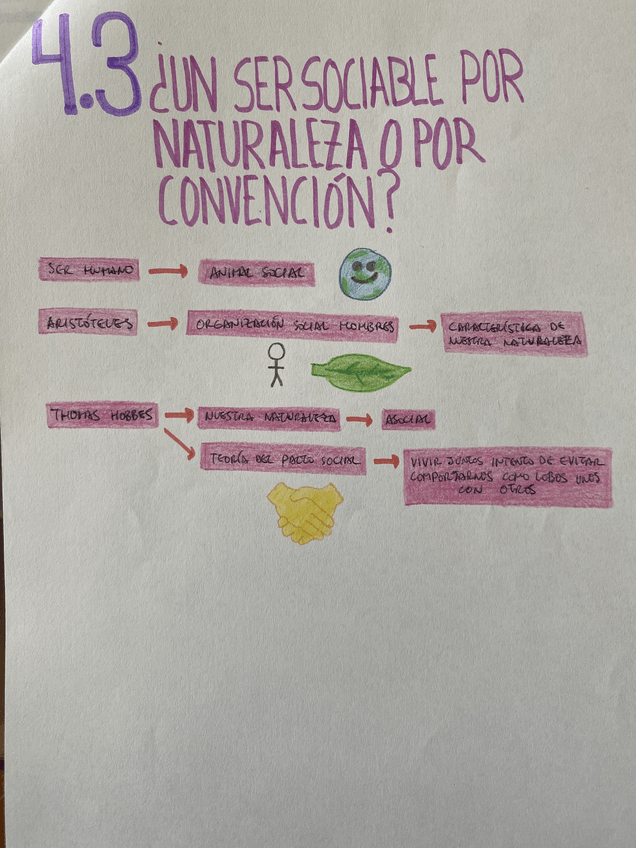 4.3 ¿UN SER SOCIABLE POR
NATURALEZA O POR
CONVENCIÓN?
SER HUMANO → ANIMAL SOCIAL
ARISTÓTELES → ORGANIZACIÓN SOCIAL HOMBRES → CARACTERÍSTICA DE
NUESTRA NATURALEZA
THOMAS HOBBES → NUESTRA NATURALEZA → ASOCIAL
TEORÍA DEL PACTO SOCIAL → VIVIR JUNTOS INTENTO DE EVITAR
COMPORTARNOS COMO LOBOS UNOS
CON OTROS